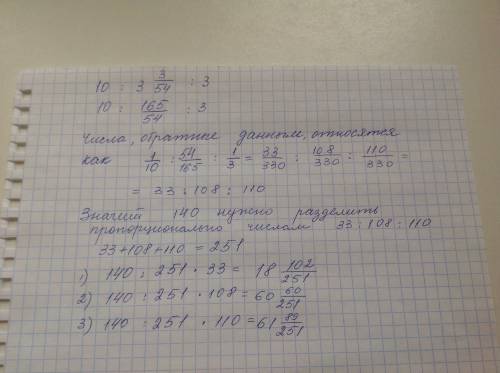 10 : 3 3/54 : 3
10 : 165/54 : 3
Числа, обратные данным, относятся
как 1/10 : 54/165 : 1/3 = 33/330 : 108/330 : 110/330 =
= 33 : 108 : 110
Значит 140 нужно разделить
пропорционально числам 33 : 108 : 110
33 + 108 + 110 = 251
1) 140 : 251 · 33 = 18 102/251
2) 140 : 251 · 108 = 60 60/251
3) 140 : 251 · 110 = 61 89/251